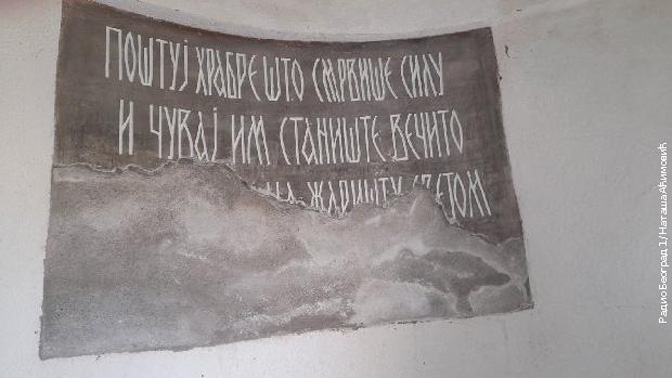 ПОШТУЈ ХРАБРЕ ШТО СМРВИШЕ СИЛУ
И ЧУВАЈ ИМ СТАНИШТЕ ВЕЧИТО
НА ЖАРИШТУ СВЕТОМ
Радио Београд 1 / Наташа Аћимовић